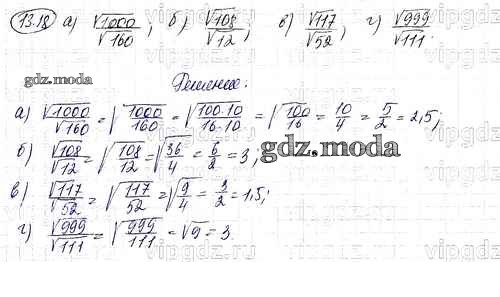 13.18 а) √1000/√160; б) √108/√12; в) √117/√52; г) √999/√111.
gdz.moda
Решение.
а) √1000/√160 = √(1000/160) = √(100·10/16·10) = √(100/16) = 10/4 = 5/2 = 2,5;
б) √108/√12 = √(108/12) = √(36/4) = 6/2 = 3,
gdz.moda
в) √117/√52 = √(117/52) = √(9/4) = 3/2 = 1,5;
г) √999/√111 = √(999/111) = √9 = 3.
vipgdz.ru